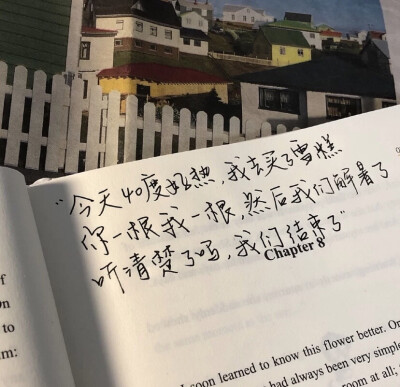 "今天40度好热,我去买了雪糕
你一根我一根,然后我们解暑了
听清楚了吗,我们结束了"
Chapter 8
soon learned to know this flower better. On
had always been very simple
room at all;
of
On
to
m: